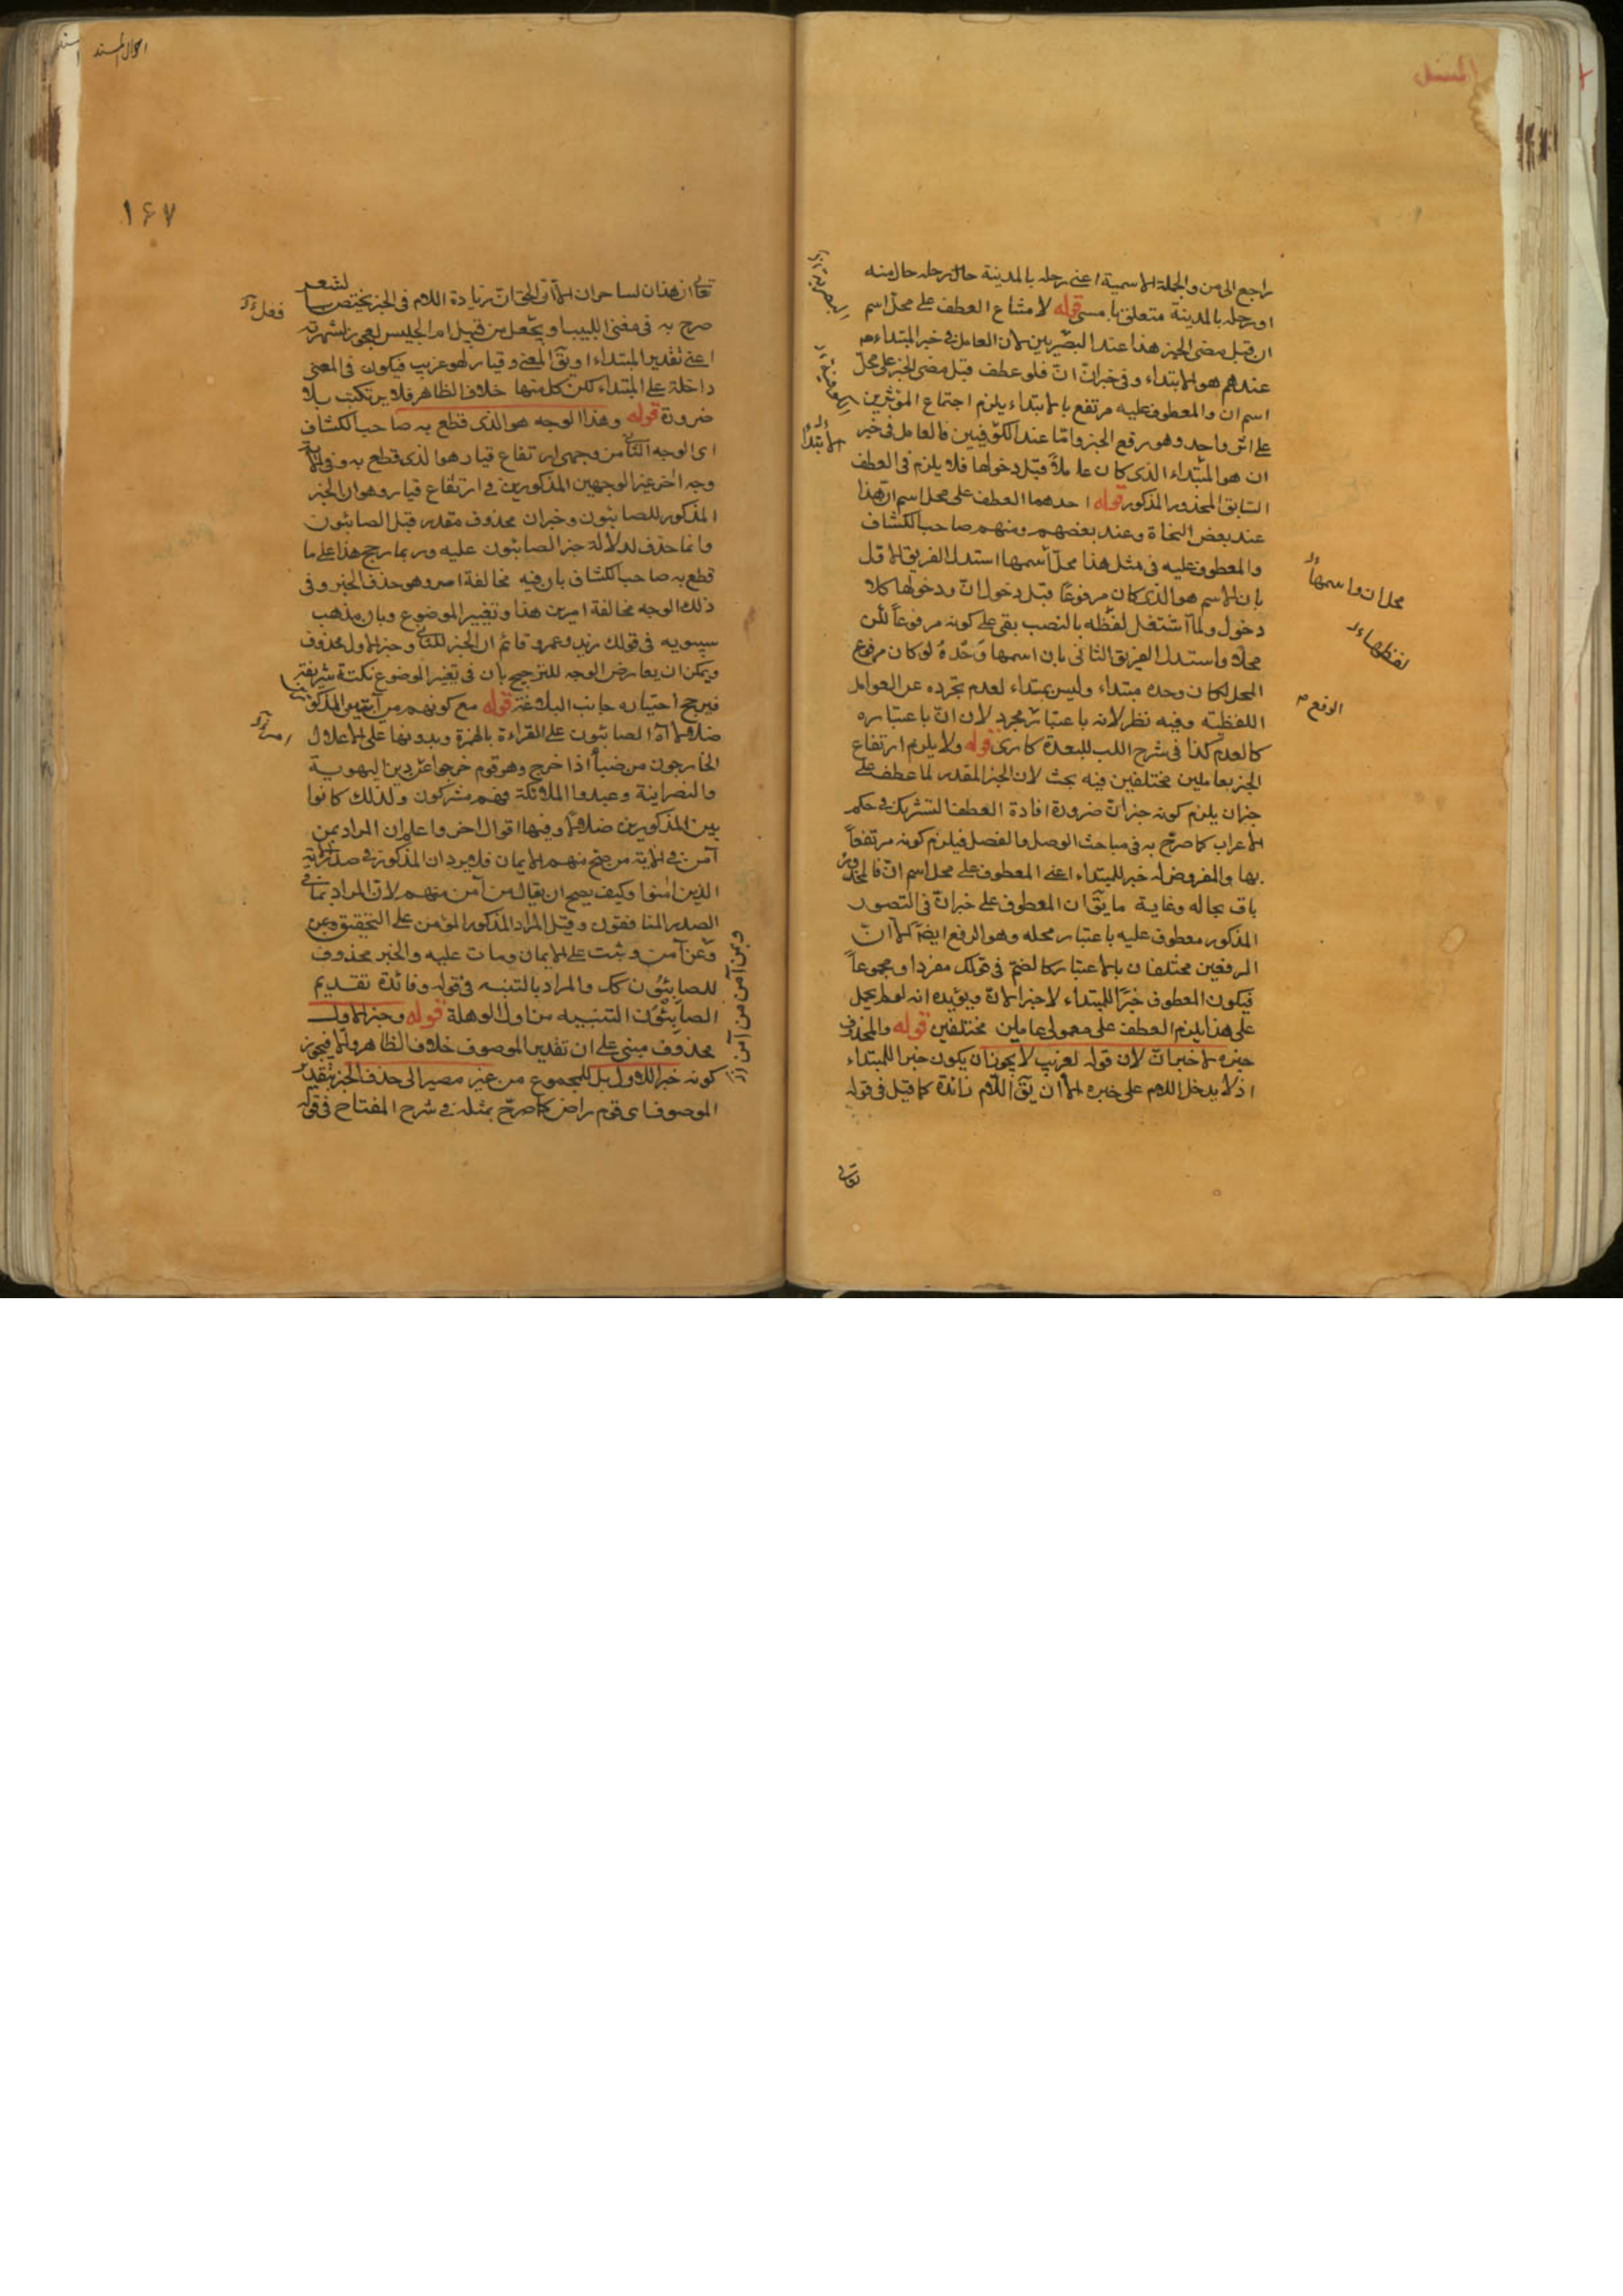 المسند
راجع الى من والجملة الاسمية اعنى رحله بالمدينة حال رحله حال منه
او رحله بالمدينة متعلق بامسى قوله لامتناع العطف على محل اسم
ان قبل مضى الخبر هذا عند البصريين لان العامل فى خبر المبتداء
عندهم هو الابتداء وفى خبران ان فلو عطف قبل مضى الخبر على محل
اسم ان والمعطوف عليه مرتفع بالابتداء يلزم اجتماع المؤثرين
على اثر واحد وهو رفع الخبر واما عند الكوفيين فالعامل فى خبر
ان هو المبتداء الذى كان عاملاً قبل دخولها فلا يلزم فى العطف
السابق المحذور المذكور قوله احدهما العطف على محل اسم ان هذا
عند بعض النحاة وعند بعضهم ومنهم صاحب الكشاف
والمعطوف عليه فى مثل هذا محل اسمها استدل الفريق الاول
بان الاسم هو الذى كان مرفوعاً قبل دخول ان ودخولها كلا
دخول ولما اشتغل لفظه بالنصب بقى على كونه مرفوعاً لكن
محلا واستدل الفريق الثانى بان اسمها وَحْدهُ لو كان مرفوع
المحل لكان وحده مبتداء وليس بمبتداء لعدم تجرده عن العوامل
اللفظية وفيه نظر لانه باعتبار مجرد لان ان باعتباره
كالعدم كذا فى شرح اللب للبعدة كا ترى قوله ولا يلزم ارتفاع
الخبر بعاملين مختلفين فيه بحث لان الخبر المقدر لما عطف على
خبران يلزم كونه خبران ضرورة افادة العطف التشريك فى حكم
الاعراب كما صرح به فى مباحث الوصل والفصل فيلزم كونه مرتفعاً
بها والمفروض انه خبر للمبتداء اعنى المعطوف على محل اسم ان فالمحذور
باق بحاله وغاية ما يق ان المعطوف على خبران فى التصور
المذكور معطوف عليه باعتبار محله وهو الرفع ايضا الا ان
الرفعين مختلفان بالاعتبار كالضم فى فلك مفردا ومجموعاً
فيكون المعطوف خبراً للمبتداء لا خبرا لان ويؤيده انه لو لم يحمل
على هذا يلزم العطف على معمولى عاملين مختلفين قوله والمحذوف
خبره لا خبران لان قوله لغريب لا يجوز ان يكون خبرا للمبتداء
اذ لا يدخل اللام على خبره الا ان يق اللام زائدة كما قيل فى قوله
محل ان واسمها
لفظهاء
الرفع
الابتداء
تعالى
احوال المسند
۱۶۷
تعالى ان هذان لساحران الا ان الحق ان زيادة اللام فى الخبر يختص بالشعر
صرح به فى مغنى اللبيب او يجعل من قبيل ام الحليس لعجوز شهربه
اعنى تقدير المبتداء او يق المعنى وقيار لهو غريب فيكون فى المعنى
داخلة على المبتداء لكن كل منها خلاف الظاهر فلا يرتكب بلا
ضرورة قوله وهذا الوجه هو الذى قطع به صاحب الكشاف
اى الوجه الثانى من وجهى ارتفاع قيار هو الذى قطع به وفى الآية
وجه اخر غير الوجهين المذكورين فى ارتفاع قيار وهو ان الخبر
المذكور للصابئون وخبران محذوف مقدر قبل الصابئون
وانما حذف لدلالة خبر الصابئون عليه وربما رجح هذا على ما
قطع به صاحب الكشاف بان فيه مخالفة امر وهو حذف الخبر وفى
ذلك الوجه مخالفة امرين هذا وتغيير الموضوع وبان مذهب
سيبويه فى قولك زيد وعمرو قائم ان الخبر للثانى وخبر الاول محذوف
ويمكن ان يعارض الوجه للترجيح بان فى تغيير الموضوع نكتة شريفة
فيرجح اختياره جانب البلاغة قوله مع كونهم من ابين المذكورين
ضلالا الصابئون على القراءة بالهمزة وبدونها على الاعلال
الخارجون من صبأ اذا خرج وهو قوم خرجوا عن دين اليهودية
والنصرانية وعبدوا الملائكة فهم مشركون ولذلك كانوا
بين المذكورين ضلالا وفيها اقوال اخر واعلم ان المراد بمن
آمن فى الاية من صح منهم الايمان فلا يرد ان المذكور فى صدر الاية
الذين آمنوا وكيف يصح ان يقال من آمن منهم لان المراد بما فى
الصدر المنافقون وقيل المراد المذكور المؤمن على التحقيق وبمن
وعن آمن وثبت على الايمان ومات عليه والخبر محذوف
للصابئون كك والمراد بالتنبيه فى قوله وفائدة تقديم
الصابِئُون التنبيه من اول الوهلة قوله وخبر الاول
محذوف مبنى على ان تقدير الموصوف خلاف الظاهر والا فيجوز
كونه خبر الاول بل للمجموع من غير مصير الى حذف الخبر بتقدير
الموصوف اى قوم راض كما صرح بمثله فى شرح المفتاح فى قوله
فعل
وبمن آمن من آمن